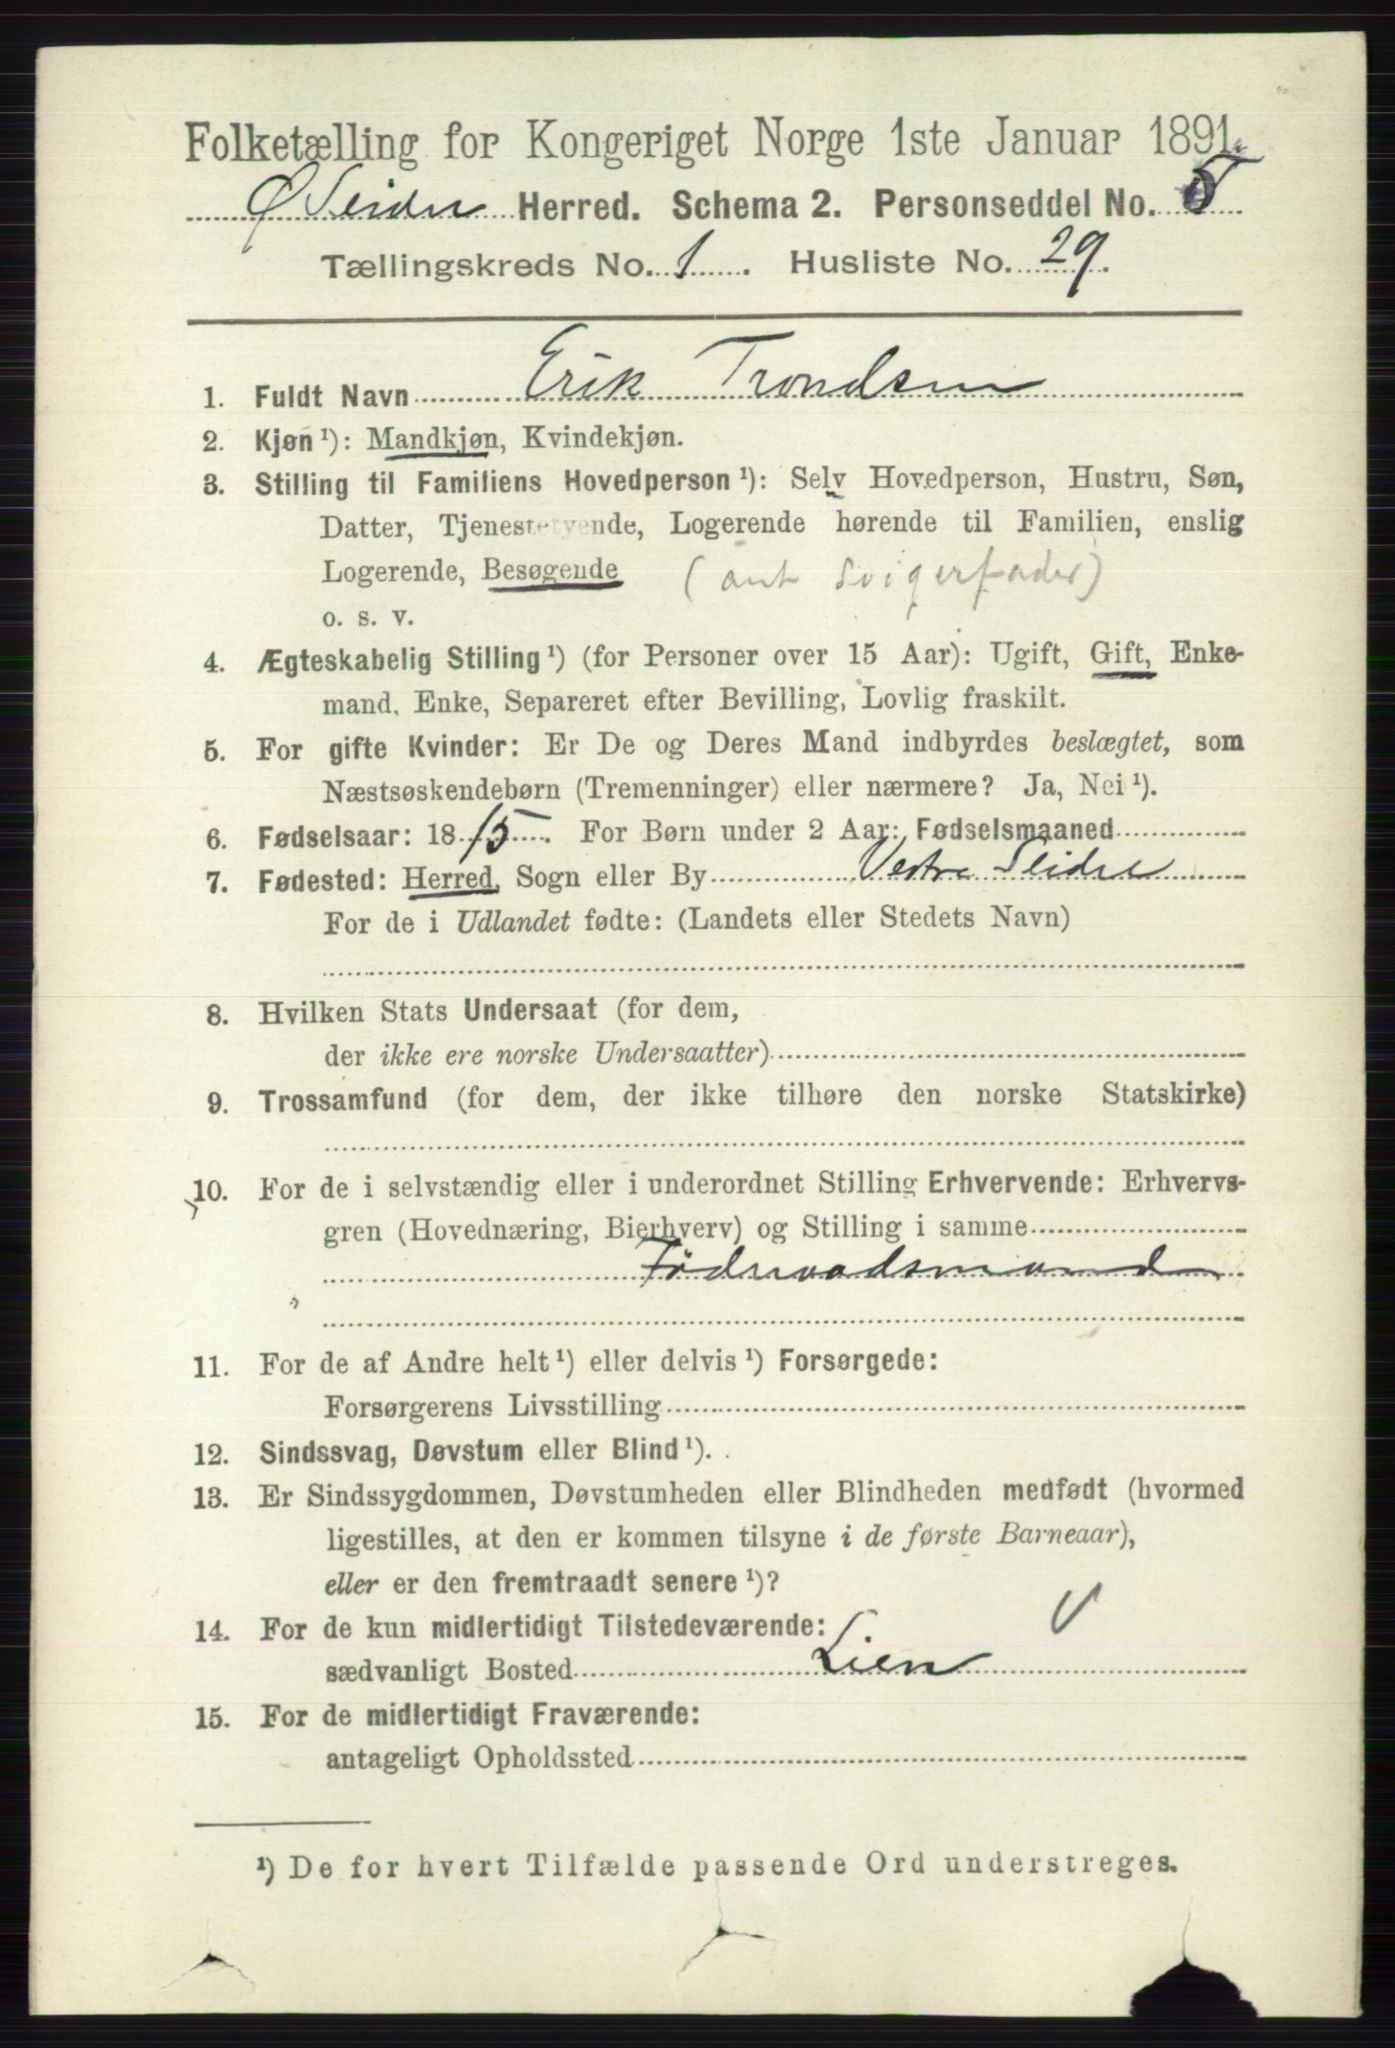 Folketælling for Kongeriget Norge 1ste Januar 1891.
Ø Slidre Herred. Schema 2. Personseddel No. 5
Tællingskreds No. 1. Husliste No. 29.
1. Fuldt Navn Erik Trondsen
2. Kjøn ¹): Mandkjøn, Kvindekjøn.
3. Stilling til Familiens Hovedperson ¹): Selv Hovedperson, Hustru, Søn,
Datter, Tjenestetyende, Logerende hørende til Familien, enslig
Logerende, Besøgende (ant svigerfader)
o. s. v.
4. Ægteskabelig Stilling ¹) (for Personer over 15 Aar): Ugift, Gift, Enke-
mand, Enke, Separeret efter Bevilling, Lovlig fraskilt.
5. For gifte Kvinder: Er De og Deres Mand indbyrdes beslægtet, som
Næstsøskendebørn (Tremenninger) eller nærmere? Ja, Nei ¹).
6. Fødselsaar: 1815. For Børn under 2 Aar: Fødselsmaaned
7. Fødested: Herred, Sogn eller By Vestre Slidre
For de i Udlandet fødte: (Landets eller Stedets Navn)
8. Hvilken Stats Undersaat (for dem,
der ikke ere norske Undersaatter)
9. Trossamfund (for dem, der ikke tilhøre den norske Statskirke)
10. For de i selvstændig eller i underordnet Stilling Erhvervende: Erhvervs-
gren (Hovednæring, Bierhverv) og Stilling i samme
Föderaadsmand
11. For de af Andre helt ¹) eller delvis ¹) Forsørgede:
Forsørgerens Livsstilling
12. Sindssvag, Døvstum eller Blind ¹).
13. Er Sindssygdommen, Døvstumheden eller Blindheden medfødt (hvormed
ligestilles, at den er kommen tilsyne i de første Barneaar),
eller er den fremtraadt senere ¹)?
14. For de kun midlertidigt Tilstedeværende:
sædvanligt Bosted Lien
15. For de midlertidigt Fraværende:
antageligt Opholdssted
¹) De for hvert Tilfælde passende Ord understreges.